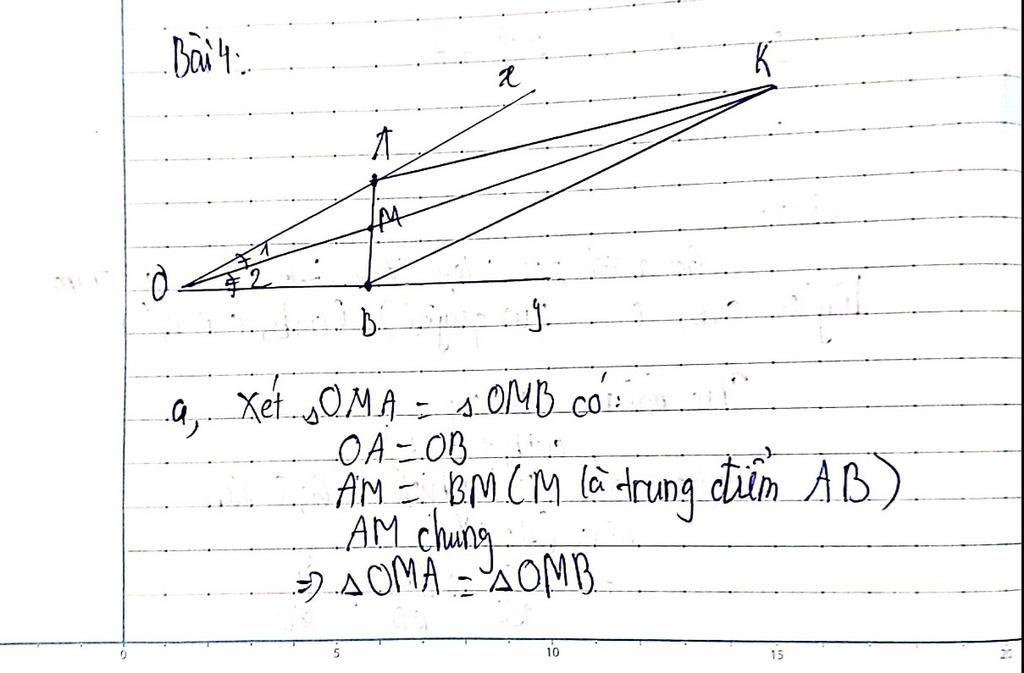 Bài 4:
x
K
A
M
1
2
O
B
y
a, Xét ΔOMA = ΔOMB có:
OA = OB
AM = BM (M là trung điểm AB)
AM chung
=> ΔOMA = ΔOMB
0 5 10 15 20